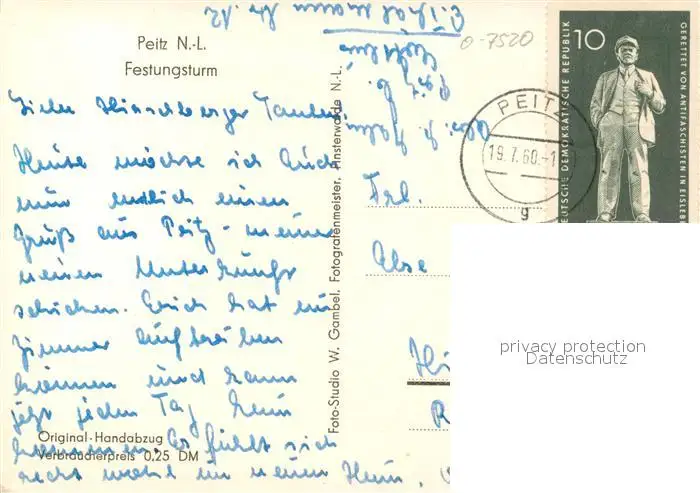 Peitz N.-L.
Festungsturm
Liebe Hirschberger Tanten
Heute möchte ich Euch
nun endlich einen
Gruß aus Peitz - meiner
neuen Unterkunft
schicken. Erich hat ein
Zimmer auftreiben
können und kann
jetzt jeden Tag heim
kommen. Er fühlt sich
recht wohl im neuen Heim,
Original-Handabzug
Verbraucherpreis 0,25 DM
Foto-Studio W. Gambel, Fotografenmeister, Finsterwalde N.-L.
Abs.
Peitz
0-7520
PEITZ
19.7.60.-1
g
10
DEUTSCHE DEMOKRATISCHE REPUBLIK
GERETTET VON ANTIFASCHISTEN IN EISLEBE
Frl.
Else
Hi
R
privacy protection
Datenschutz